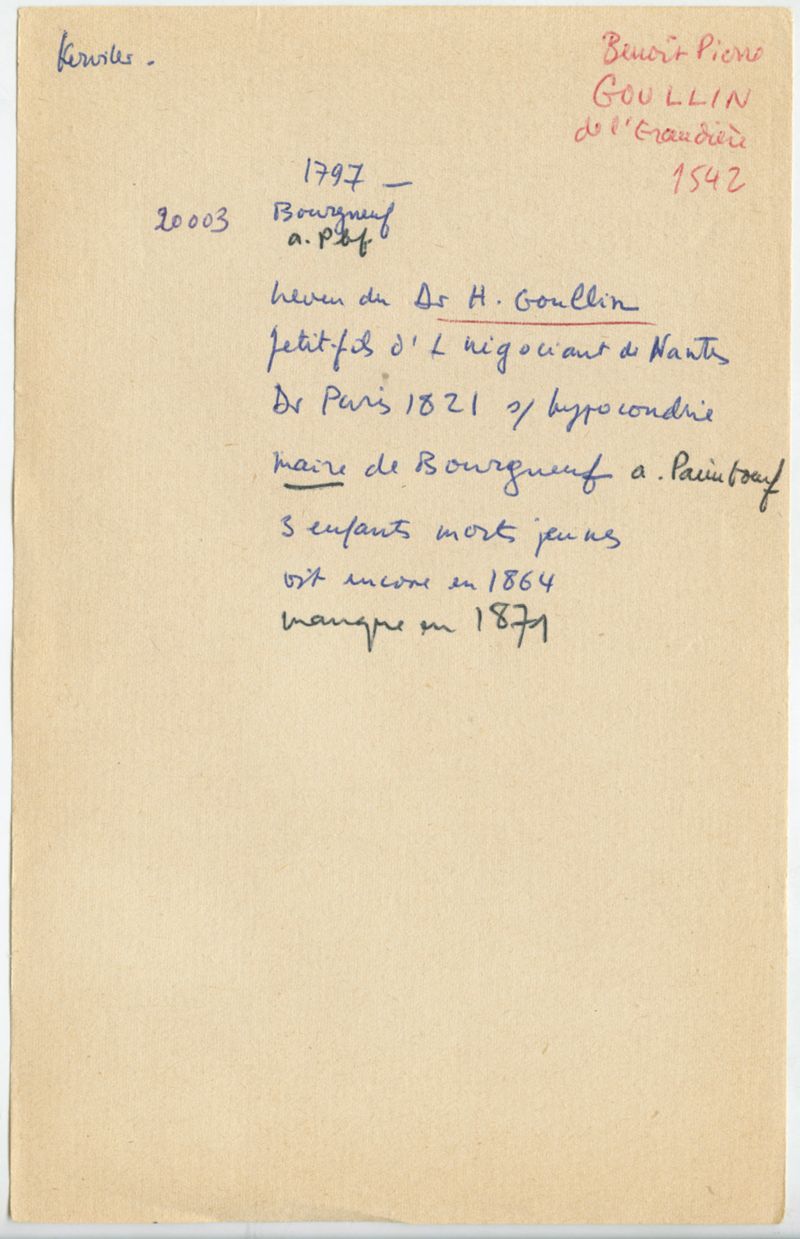 Kerviler.
Benoît Pierre
GOULLIN
de l'Eraudière
1542
1797 —
20003 Bourgneuf
a. Pbf.
neveu du Dr H. Goullin
petit-fils d'1 négociant de Nantes
Dr Paris 1821 s/ hypocondrie
maire de Bourgneuf a. Paimboeuf
3 enfants morts jeunes
vit encore en 1864
manque en 1871